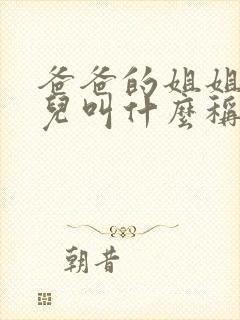 爸爸的姐姐
兒叫什麼稱
朝昔